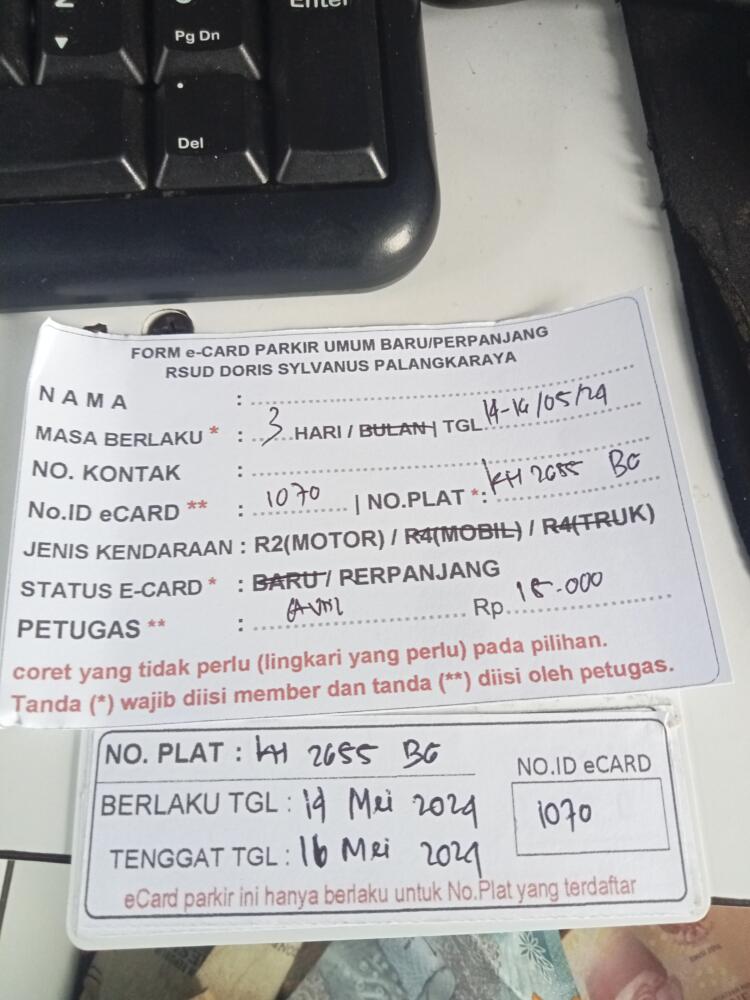 Enter
Pg Dn
Del
FORM e-CARD PARKIR UMUM BARU/PERPANJANG
RSUD DORIS SYLVANUS PALANGKARAYA
N A M A :
MASA BERLAKU * : 3 HARI / BULAN | TGL 14-16/05/24
NO. KONTAK :
No.ID eCARD ** : 1070 | NO.PLAT *: KH 2655 BG
JENIS KENDARAAN : R2(MOTOR) / R4(MOBIL) / R4(TRUK)
STATUS E-CARD * : BARU / PERPANJANG
PETUGAS ** : Rp. 15.000
coret yang tidak perlu (lingkari yang perlu) pada pilihan.
Tanda (*) wajib diisi member dan tanda (**) diisi oleh petugas.
NO. PLAT : KH 2655 BG
NO.ID eCARD
BERLAKU TGL : 14 Mei 2024
1070
TENGGAT TGL : 16 Mei 2024
eCard parkir ini hanya berlaku untuk No.Plat yang terdaftar